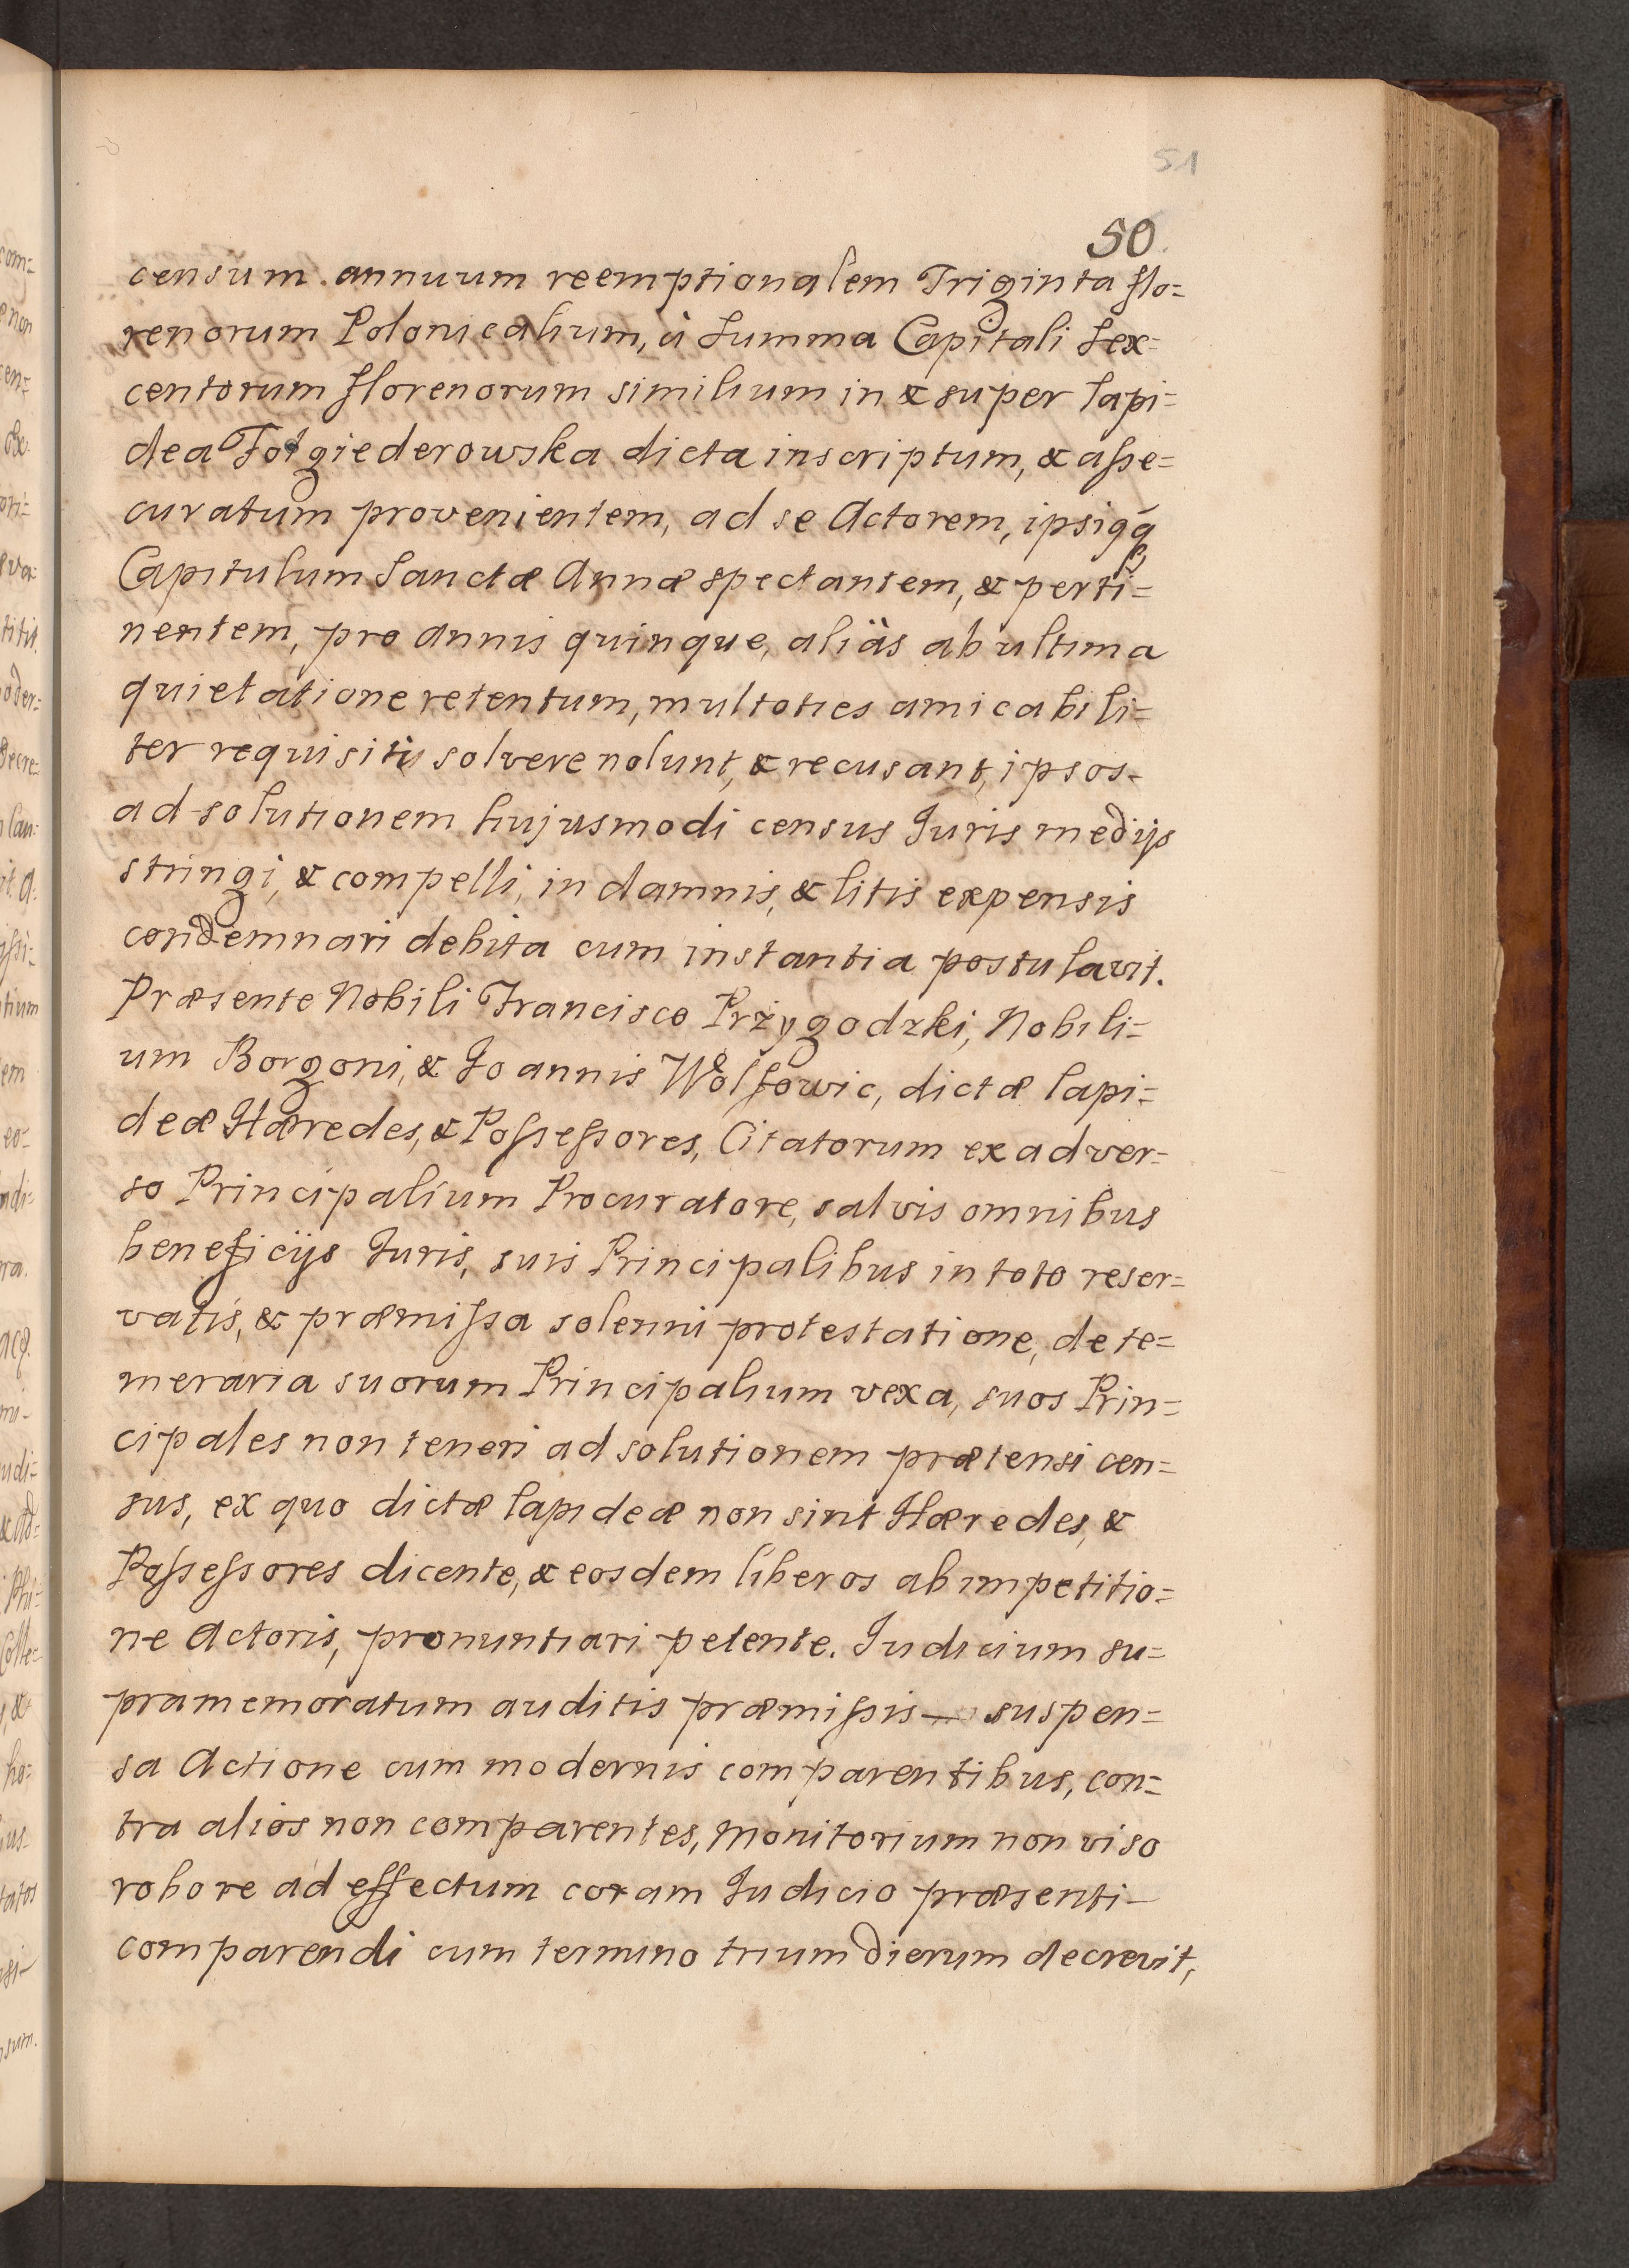 51
50.
censum annuum reemptionalem Triginta flo=
renorum Polonicalium, à Summa Capitali Sex=
centorum florenorum similium in & super lapi=
dea Folgiederowska dicta inscriptum, & asse=
curatum provenientem, ad se Actorem, ipsiqq
Capitulum Sanctæ Annæ spectantem, & perti=
nentem, pro annis quinque, aliàs ab ultima
quietatione retentum, multoties amicabili=
ter requisiti solvere nolunt, & recusant, ipsos-
ad solutionem hujusmodi census Iuris medijs
stringi, & compelli, in damnis, & litis expensis
condemnari debita cum instantia postulavit.
Præsente Nobili Francisco Przygodzki, Nobili=
um Borgoni, & Joannis Wolfowic, dictæ lapi=
deæ Hæredes, & Possessores, Citatorum ex adver=
so Principalium Procuratore, salvis omnibus
beneficijs Iuris, suis Principalibus in toto reser=
vatis, & præmissa solenni protestatione, de te=
meraria suorum Principalium vexa, suos Prin=
cipales non teneri ad solutionem prætensi cen=
sus, ex quo dictæ lapideæ non sint Hæredes, &
Possessores dicente, & eosdem liberos ab impetitio=
ne Actoris, pronuntiari petente. Iudicium su=
pramemoratum auditis præmissis — suspen=
sa Actione cum modernis comparentibus, con=
tra alios non comparentes, Monitorium non viso
robore ad effectum coram Iudicio præsenti-
comparendi cum termino trium dierum decrevit,